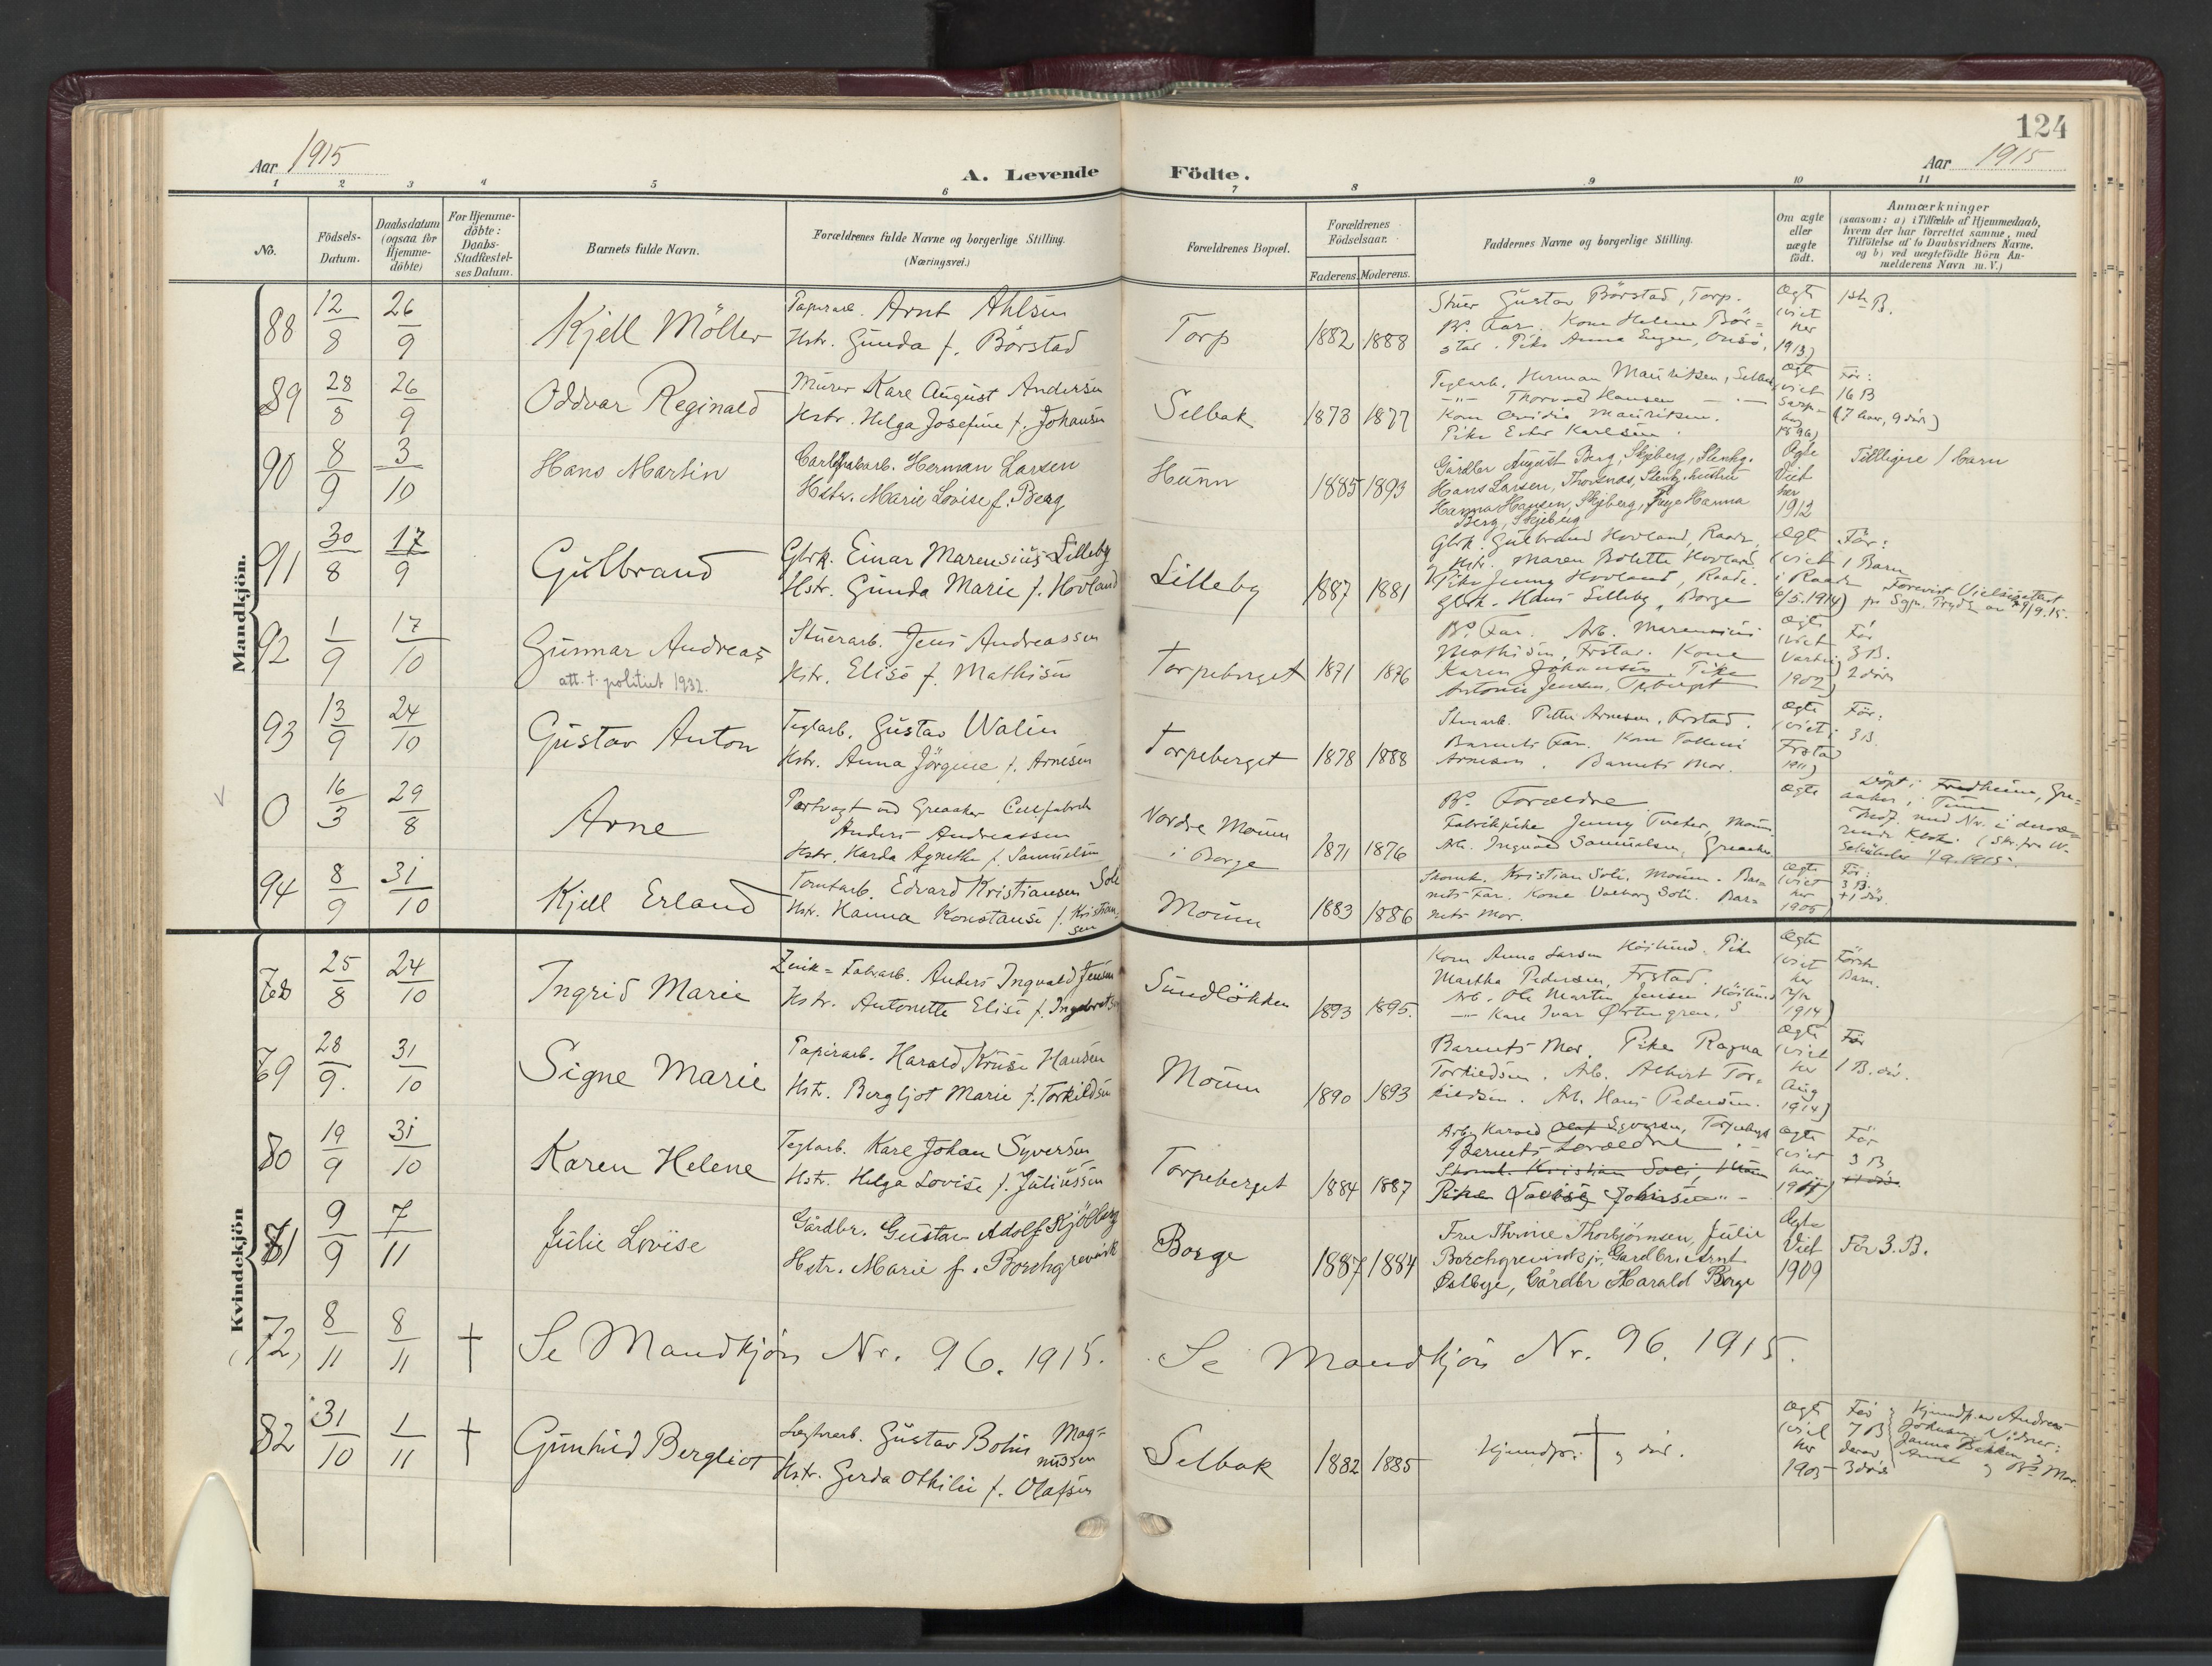 124
Aar 1915
A. Levende Födte.
Aar 1915
1 2 3 4 5 6 7 8 9 10 11
No.
Födsels-
Datum.
Daabsdatum
(ogsaa for
Hjemme-
döbte)
For Hjemme-
döbte:
Daabs-
Stadfæstel-
ses Datum.
Barnets fulde Navn.
Forældrenes fulde Navne og borgerlige Stilling.
(Næringsvei.)
Forældrenes Bopæl.
Forældrenes
Födselsaar.
Faderens. Moderens.
Faddernes Navne og borgerlige Stilling.
Om ægte
eller
uægte
födt.
Anmærkninger
(saasom: a) i Tilfælde af Hjemmedaab,
hvem der har forrettet samme, med
Tilföielse af to Daabsvidners Navne,
og b) ved uægtefödte Börn An-
melderens Navn m. V.)
Mandkjön.
88 12/8 26/9 Kjell Möller
Papirarb. Arnt Ahlsen
Hstr. Gunda f. Börstad
Torp 1882 1888
Gustav Börstad, Torp.
Bs. Far. Kone Helene Bör=
stad. Pike Anna
Ægte
(viet
her
1913)
1ste B.
89 28/8 26/9 Oddvar Reginald
Murer Karl August Andersen
Hstr. Helga Josefine f. Johansen
Selbak 1873 1877
Teglarb. Herman Mauritzen, Selbak
-"- Thorvald Hansen -"-
Kone Mauritzen.
Pike Ester Karlsen.
Ægte
viet
Sarp-
1896)
Før:
16 B
(7 lever, 9 død)
90 8/9 3/10 Hans Martin
Herman Larsen
Hstr. Marie Lovise f. Berg
Hunn 1885 1893
Gårdbr August Berg, Skjeberg,
Hans Larsen, Thorsnes,
Hanna Hansen, Skjeberg, Hanna
Berg, Skjeberg
Ægte
Viet
her
1912
Tidligere 1 barn
91 30/8 17/9 Gulbrand
Gbrk. Einar Marensius Lilleby
Hstr. Gunda Marie f. Hovland
Lilleby 1887 1881
Gbrk. Gulbrand Hovland, Raade,
Hstr. Maren Bolette Hovland
Pike Jenny Hovland, Raade.
Gbrk. Hans Lilleby, Borge
Ægte
(viet
i Raade
6/5.1914)
Før:
1 Barn
Forevist Vielsesattest
92 1/9 17/10 Gunnar Andreas
att. t. politiet 1932.
Stuerarb. Jens Andreassen
Hstr. Elise f. Mathisen
Torpeberget 1871 1876
Bs. Far. Arb. Marensius
Mathisen, Frstad. Kone
Karen Johansen. Pike
Antonie Jensen,
Ægte
(viet
Varteig
1902)
Før
3 B.
2 døde
93 13/9 24/10 Gustav Anton
Teglarb. Gustav Walin
Hstr. Anna Jörgine f. Arnesen
Torpeberget 1878 1888
Petter Arnesen, Frstad.
Barnets Far. Kone
Arnesen. Barnets Mor.
Ægte
(viet i
Frstad
1911)
Før:
3 B.
0 16/3 29/8 Arne
Portvagt ved Greaaker Cellfabrik
Anders Andreassen
Hstr. Harda Agnethe f. Samuelsen
Nordre Moum
i Borge
1871 1876
Bs. Forældre
Fabrikpike Jenny Tveter, Moum.
Arb. Ingvald Samuelsen, Greaaker
Ægte
Døpt i Fredheim, Gre=
aaker, i Tune
94 8/9 31/10 Kjell Erland
Tomtarb. Edvard Kristiansen Soli
Hstr. Hanna Konstanse f. Kristian-
sen
Moum 1883 1886
Skomk. Kristian Soli, Moum. Bar-
nets Far. Kone Valborg Soli. Bar-
nets Mor.
Ægte
(viet
her
1905)
Før:
3 B.
+ 1 dö.
Kvindekjön
78 25/8 24/10 Ingrid Marie
Zink=Fabrarb. Anders Ingvald Jensen
Hstr. Antonette Elise f. Ingebretsen
Sundlökken 1893 1895.
Kone Anna Larsen Höilund. Pike
Martha Pedersen, Frstad.
Arb. Ole Martin Jensen Höilund
-"- Karl Ivar
Ægte
(viet
her
1914)
Förste
Barn.
79 28/9. 31/10 Signe Marie
Papirarb. Harald Kruse Hansen
Hstr. Bergljot Marie f. Torkildsen
Moum 1890 1893
Barnets Mor. Pike Ragna
Torkildsen. Arb. Albert Tor-
kildsen. Arb. Hans Pedersen.
Ægte
(viet
her
Aug
1914)
Før
1 B. dö.
80 19/9 31/10 Karen Helene
Teglarb. Karl Johan Syversen
Hstr. Helga Lovise f. Juliussen
Torpeberget 1884 1887
Arb. Harald Olaf Syversen, Torpeberget
Barnets Forældre
Skomk. Kristian Soli, Moum
Pike Lovise Johnsen -"-
Ægte
(viet
her,
Før
3 B
81 9/9 7/11 Julie Lovise
Gårdbr. Gustav Adolf Kjölberg
Hstr. Marie f. Borchgrevink
Borge 1887 1884
Fru Thrine Thorbjørnsen, Julie
Borchgrevink jr, Gårdbr. Arnt
Østbye, Gårdbr Harald Borge
Ægte
Viet
1909
Før 3. B.
(72) 8/11 8/11 † Se Mandkjön Nr. 96. 1915. Se Mandkjön Nr. 96. 1915.
82 31/10 1/11 † Gunhild Bergliot
Gustav Bohin Mag=
nussen
Hstr. Gerda Othilie f. Olafsen
Selbak 1882 1885
Hjemdpt. † og död.
Ægte
(viet
her
1903
Før
7 B
derav
3 døde
Hjemdp. av Andreas
Johansen
Janna Bakken,
og Bs. Mor.